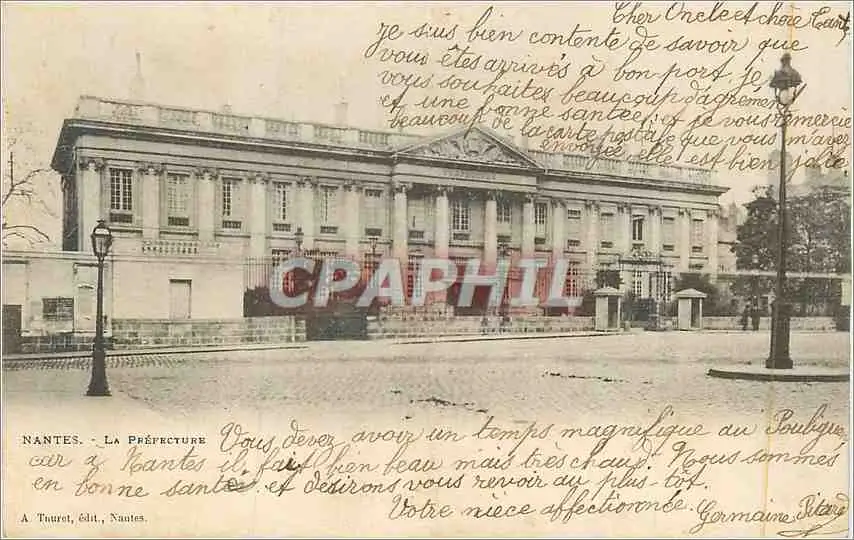 Cher Oncle et chère Tante
je suis bien contente de savoir que
vous êtes arrivés à bon port, je
vous souhaites beaucoup d'agrément
et une bonne santée; et je vous remercie
beaucoup de la carte postale que vous m'avez
envoyée, elle est bien jolie
CPARAMA
NANTES. - LA PRÉFECTURE
Vous devez avoir un temps magnifique au Pouliguen
car à Nantes il fait bien beau mais très chaud. Nous sommes
en bonne santée et désirons vous revoir au plus-tôt.
Votre nièce affectionnée. Germaine
A Tauret, édit., Nantes.